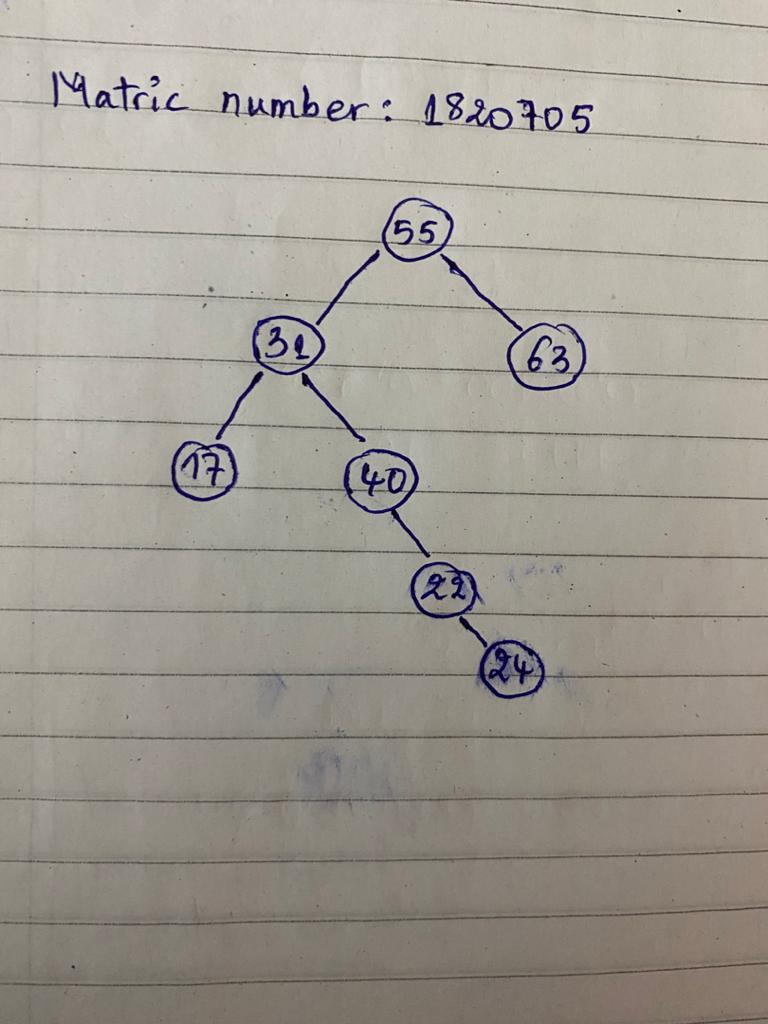 Matric number: 1820705
55
31 63
17 40
22
24